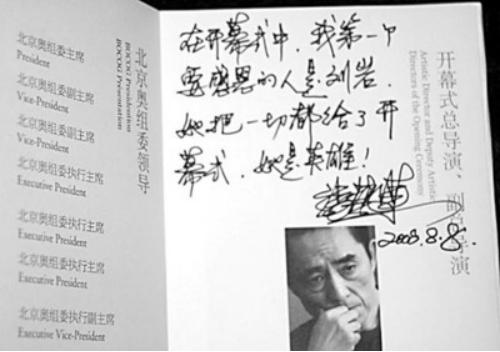 北京奥组委主席
President
北京奥组委副主席
Vice-President
北京奥组委副主席
Vice-President
北京奥组委执行主席
Executive President
北京奥组委执行主席
Executive President
北京奥组委执行主席
Executive President
北京奥组委执行副主席
Executive Vice-President
北京奥组委领导
BOCOG Presidention
BOCOG Présentation
在开幕式中，我第一个
要感恩的人是刘岩．
她把一切都给了开
幕式，她是英雄！
2008.8.8.
开幕式总导演、副总导演
Artistic Director and Deputy Artistic
Directors of the Opening Ceremony